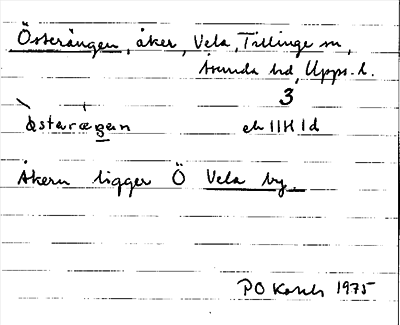 Österängen, åker, Vela, Tillinge sn,
Åsunda hd, Upps. l.
3
ek 11H 1d
Åkern ligger Ö Vela by.
PO 1975